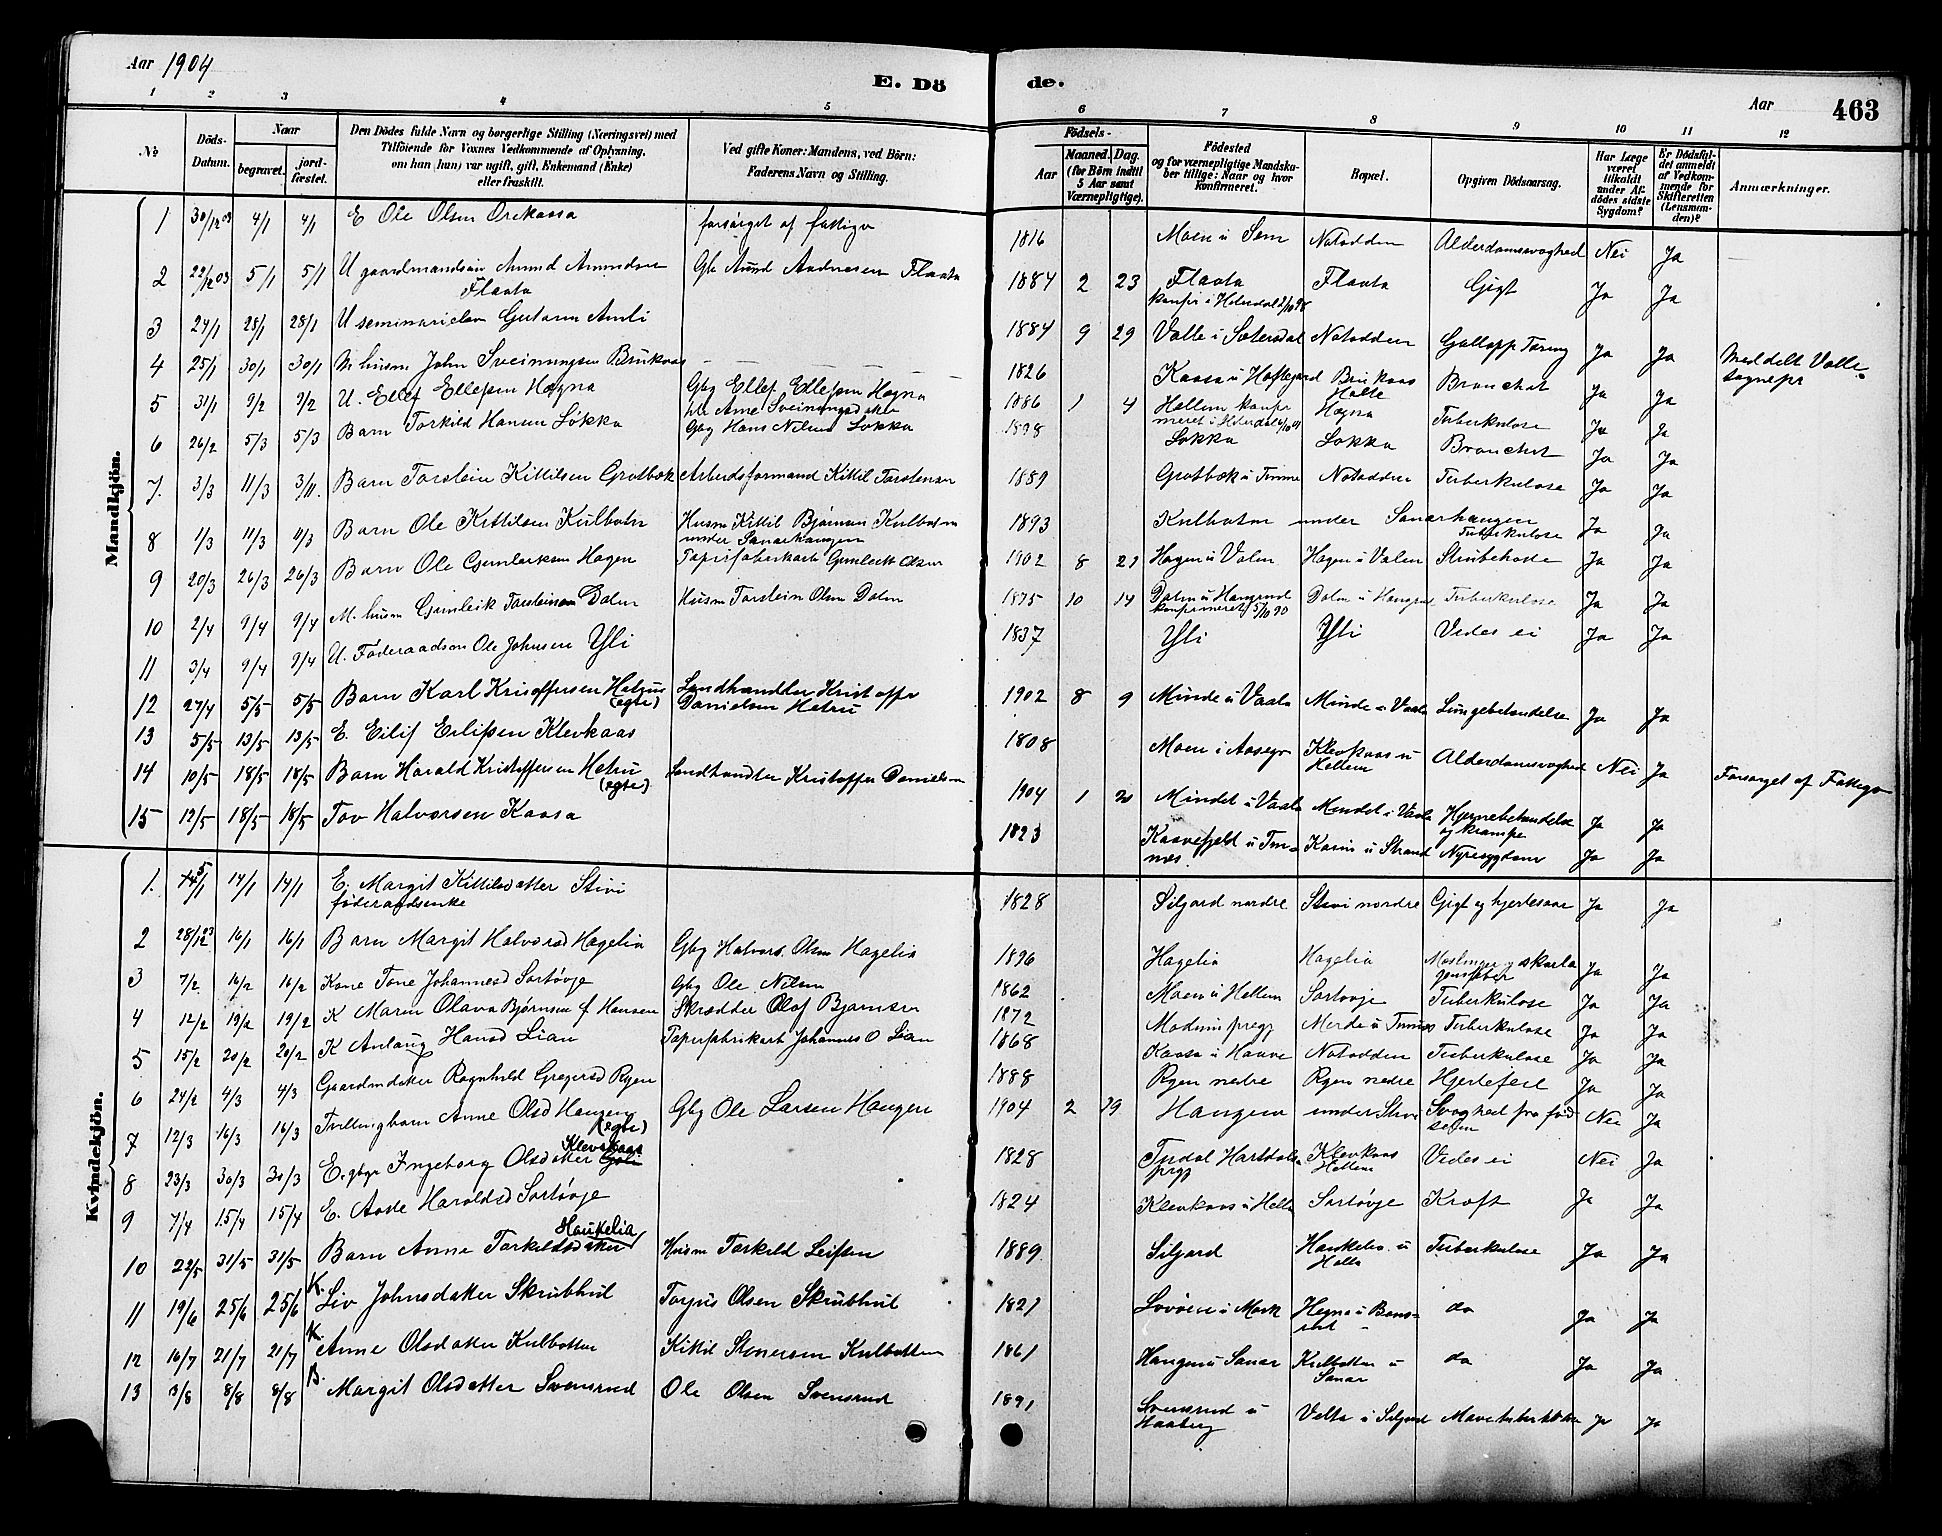 Aar 1904
E. Dö de.
Aar
463
1 2 3 4 5 6 7 8 9 10 11 12
No
Döds-Datum.
Naar
begravet.
jord-fæstet.
Den Dödes fulde Navn og borgerlige Stilling (Næringsvei) med
Tilföiende for Voxnes Vedkommende af Oplysning,
om han (hun) var ugift, gift, Enkemand (Enke)
eller fraskilt.
Ved gifte Koner: Mandens, ved Börn:
Faderens Navn og Stilling.
Födsels-
Aar
Maaned. Dag.
(for Börn indtil
5 Aar samt
Værnepligtige).
Födested
og for værnepligtige Mandska-
ber tillige: Naar og hvor
konfirmeret.
Bopæl.
Opgiven Dödsaarsag.
Har Læge
været
tilkaldt
under Af-
dödes sidste
Sygdom?
Er Dödsfal-
det anmeldt
af Vedkom-
mende for
Skifteretten
(Lensman-
den)?
Anmærkninger.
Mandkjön.
1 30/12 03 4/1 4/1 E Ole Olsen Orekaasa forsørget af fattigv 1816 Moen u Sem Notodden Alderdomssvaghed Nei Ja
2 22/12 03 5/1 5/1 U gaardmandsøn Amund Amundsen Flaata Gb Amund Andresen Flaata 1884 2 23 Flaata konfir i Hiterdal 2/10 98 Flaata Gigt Ja Ja
3 24/1 28/1 28/1 U seminarielev Gutorm Amli 1884 9 29 Valle i Sætersdal Notodden Gallopp Tæring Ja Ja Meddelt Valle sognepr
4 25/1 30/1 30/1 M husm John Sveinungsen Brukaas 1826 Kaasa u Haftegard Brukaas Bronchit Ja Ja
5 31/1 9/2 9/2 U. Ellef Ellefsen Høgna Gbg Ellef Ellefsen Høgna 1886 1 4 Hellem konfirmeret i Hiterdal Høgna Tuberkulose Ja Ja
6 26/2 5/3 5/3 Barn Torkild Hansen Løkka Gbg Hans Nilsen Løkka 1898 Løkka Løkka Bronchit Ja Ja
7. 3/3 11/3 3/11. Barn Torstein Kittilsen Grotbæk Arbeidsformand Kittil Torstensen 1889 Grotbæk u Tinne Notodden Tuberkulose Ja Ja
8 1/3 11/3 11/3 Barn Ole Kittilsen Kulbotn Husm Kittil Bjørnsen Kulbotn under Sanarhaugen 1893 Kulbotn under Sanarhaugen Tuberkulose Ja Ja
9 20/3 26/3 26/3 Barn Ole Gunleiksen Hagen Papirfabrikarb Gunleik Olsen 1902 8 21 Hagen u Valen Hagen u Valen Strubehoste Ja Ja
10 2/4 9/4 9/4 M. husm Gunleik Torsteinsen Dalen Husm Torstein Olsen Dalen 1875 10 14 Dalen u Haugrud konfirmeret 5/10 90 Dalen u Haugrud Tuberkulose Ja Ja
11 3/4 9/4 9/4 U. Føderaadsøn Ole Johnsen Yli 1837 Yli Yli Vides ei Ja Ja
12 27/4 5/5 5/5 Barn Karl Kristoffersen (egte) Landhandler Kristoffer Danielsen Hetru 1902 8 9 Minde u Vaala Minde u Vaala Lungebetændelse Ja Ja
13 5/5 13/5 13/5 E. Eilif Eilifsen Klevkaas 1808 Moen i Aasegr Klevkaas u Hellem Alderdomssvaghed Nei Ja Forsørget af Fattigv
14 10/5 18/5 18/5 Barn Harald Kristoffersen Hetru (egte) Landhandler Kristoffer Danielsen 1904 1 20 Mindet u Vaala Mindet u Vaala Hjernebetændelse og krampe Ja Ja
15 12/5 18/5 18/5 Tov Halvorsen Kaasa 1823 Kaasefjeld u Tinnæs. Kasin u Strand Nyresygdom Ja Ja
Kvindekjön.
1. 5/1 14/1 14/1 E. Margit Kittilsdatter Stivi føderaadsenke 1828 Silgard nordre Stivi nordre Gigt og hjertesaar Ja Ja
2 28/12 03 16/1 16/1 Barn Margit Halvorsd Hagelia Gbg Halvors. Olsen Hagelia 1896 Hagelia Hagelia Mæslinger og skarlagensfeber Ja Ja
3 7/2 16/2 16/2 Kone Tone Johannesd Sortøvje Gbg Ole Nilsen 1862 Moen u Hellem Sortøvje Tuberkulose Ja Ja
4 12/2 19/2 19/2 K Maren Olava Bjørnsen f Hansen Skrædder Olaf Bjørnsen 1872 Modum præg Merde u Tinnes Tuberkulose Ja Ja
5 15/2 20/2 20/2 K Anlaug Hansd Lian Papirfabrikarb Johannes O Lian 1868 Kaasa u Haave Notodden Tuberkulose Ja Ja
6 24/2 4/3 4/3 Gaardmdatter Ragnhild Gregersd Rygen 1888 Rygen nedre Rygen nedre Hjertefeil Ja Ja
7 12/3 16/3 16/3 Tvillingbarn Anne Olsd Haugen (egte) Gbg Ole Larsen Haugen 1904 2 19 Haugen under Stivi Svaghed fra fødselen Nei Ja
8 23/3 30/3 30/3 E. gbgr Ingeborg Olsdatter Klevekaas 1828 Hartdal prgj Klevkaas Hellem Vides ei Nei Ja
9 7/4 15/4 15/4 E. Aase Haroldsd Sortøvje 1824 Klevkaas u Hella Sortøvje Kræft Ja Ja
10 22/5 31/5 31/5 Barn Anne Torkildsdatter Haukelia Husm Torkild Leifsen 1889 Silgard Haukelia u Hella Tuberkulose Ja Ja
11 19/6 25/6 25/6 K. Liv Johnsdatter Skrubhul Torjus Olsen Skrubhul 1821 Lovöen u Mark Hegna u Bensrud do Ja Ja
12 16/7 21/7 21/7 K. Anne Olsdatter Kulbotten Kittil Stenersen Kulbotten 1861 Haugen u Sanar Kulbotten u Sanar do Ja Ja
13 3/8 8/8 8/8 B. Margit Olsdatter Svensrud Ole Olsen Svensrud 1891 Svensrud u Haaberg Velta i Silgard Mavetuberkulose Ja Ja